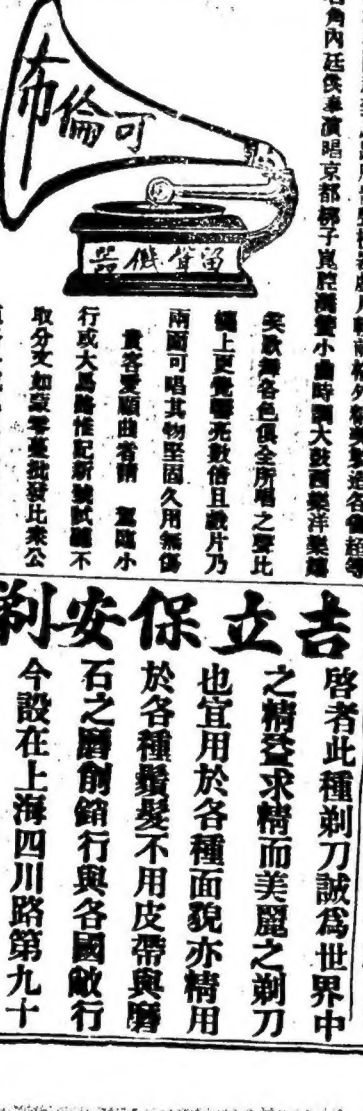 可倫布
留聲機器
角內廷供奉演唱京都梆子崑腔灘簧小曲時調大鼓西樂洋樂
笑歌舞各色俱全所唱之聲比
上更覺響亮數倍且戲片乃
兩面可唱其物至固久用無傷
貴客愛顧曲者請 駕臨小
行或大馬路惟記新號試聽不
取分文如蒙零躉批發比衆公
吉立保安剃
啓者此種剃刀誠爲世界中
之精益求精而美麗之剃刀
也宜用於各種面貌亦精用
於各種鬚髮不用皮帶與磨
石之磨削銷行與各國敝行
今設在上海四川路第九十